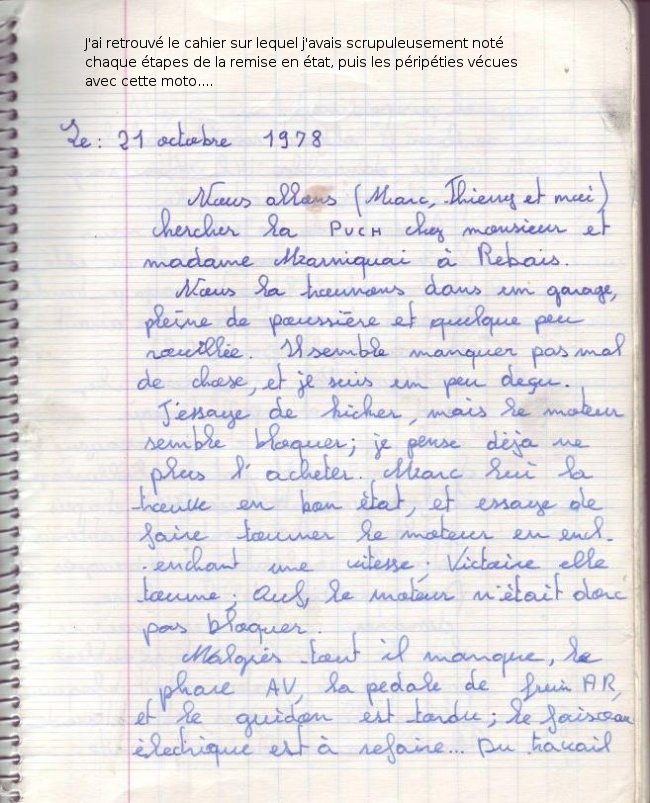 J'ai retrouvé le cahier sur lequel j'avais scrupuleusement noté
chaque étapes de la remise en état, puis les péripéties vécues
avec cette moto....
Le : 21 octobre 1978
Nous allons (Marc, Thierry et moi)
chercher la PUCH chez monsieur et
madame à Rebais.
Nous la trouvons dans un garage,
pleine de poussière et quelque peu
rouillée. Il semble manquer pas mal
de chose, et je suis un peu deçu.
J'essaye de kicker, mais le moteur
semble bloquer ; je pense déja ne
plus l'acheter. Marc lui la
trouve en bon état, et essaye de
faire tourner le moteur en encl-
-enchant une vitesse ; Victoire elle
tourne ; Ouf, le moteur n'était donc
pas bloquer.
Malgrès tout il manque, le
phare AV, la pedale de frein AR,
et le guidon est tordu ; le faisceau
électrique est à refaire... Du travail